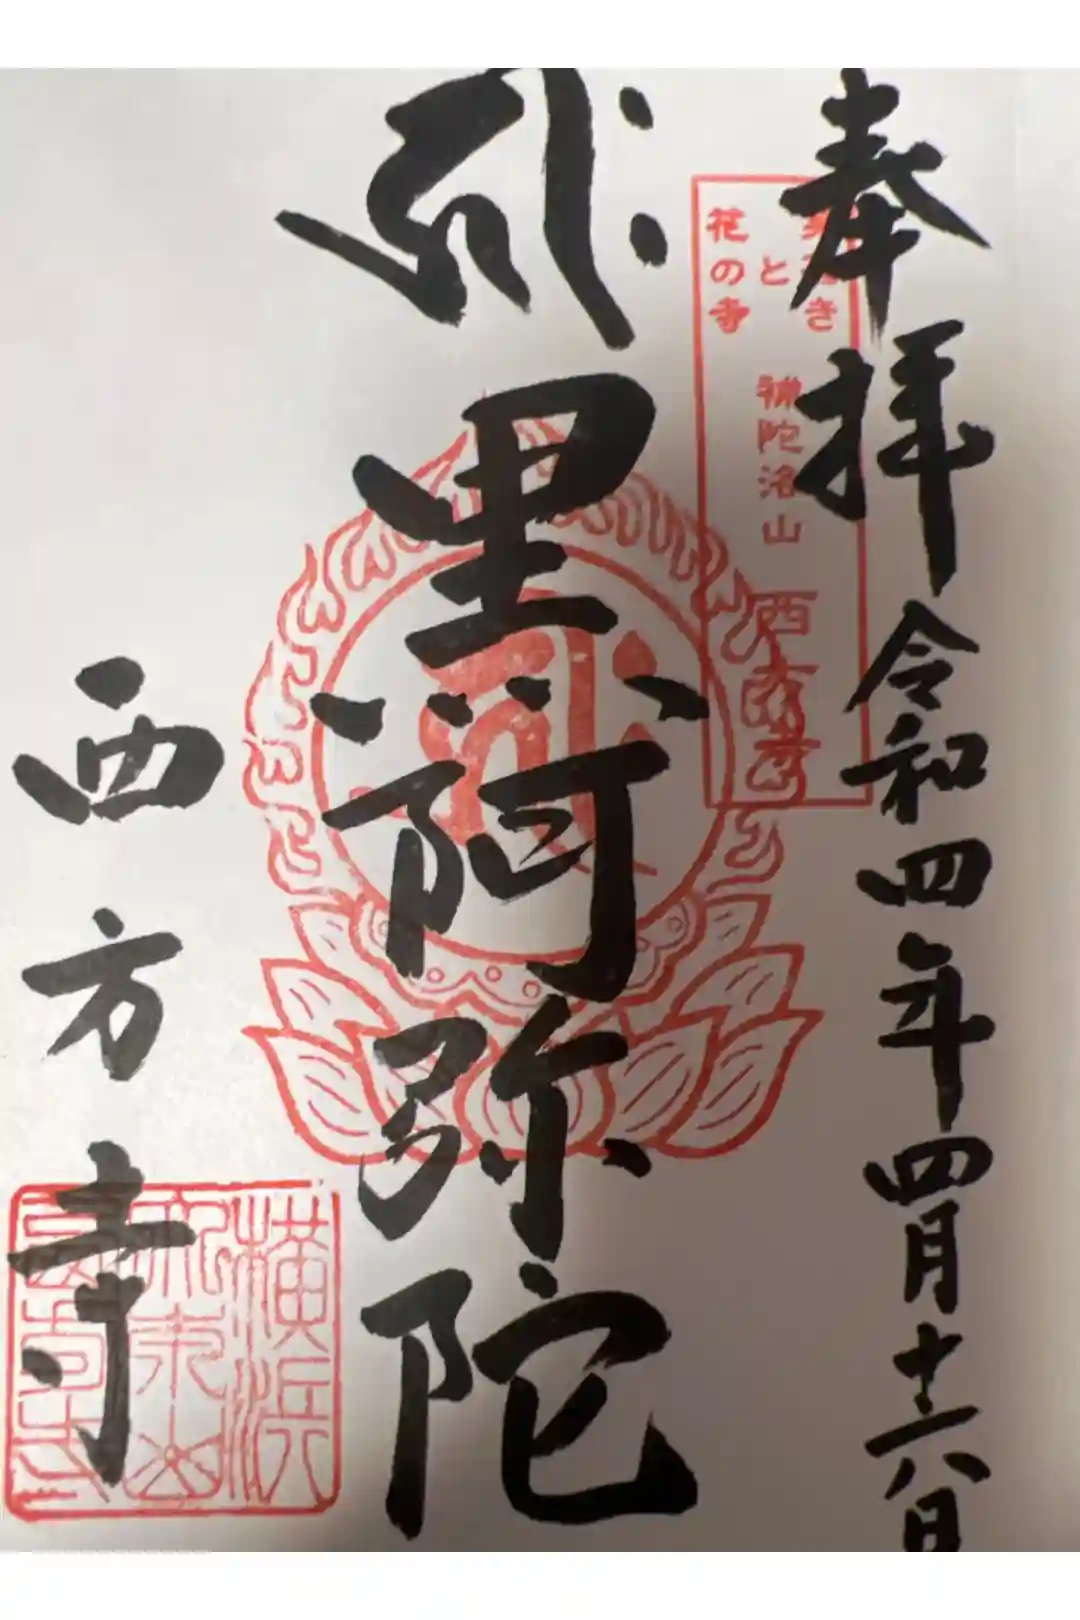 奉拝 令和四年四月十六日
と
花の寺
補陀洛山
西方寺
黒阿弥陀
西方寺
横浜